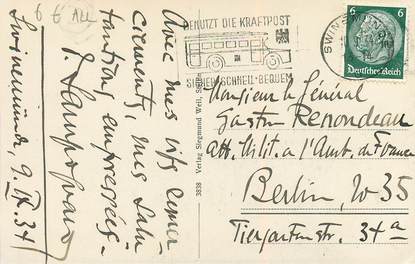 6 € ALL
BENUTZT DIE KRAFTPOST
SICHER·SCHNELL·BEQUEM
SWIN
6 6
Deutsches Reich
Avec mes vifs remer
ciements, mes salu
tations empressées.
Swinemünde, 9. IX. 34
3838 Verlag Siegmund Weil,
Monsieur le Général
Gaston Renondeau
Att. Milit. a l'Amb. de France
Berlin, W 35
Tiergartenstr. 34a